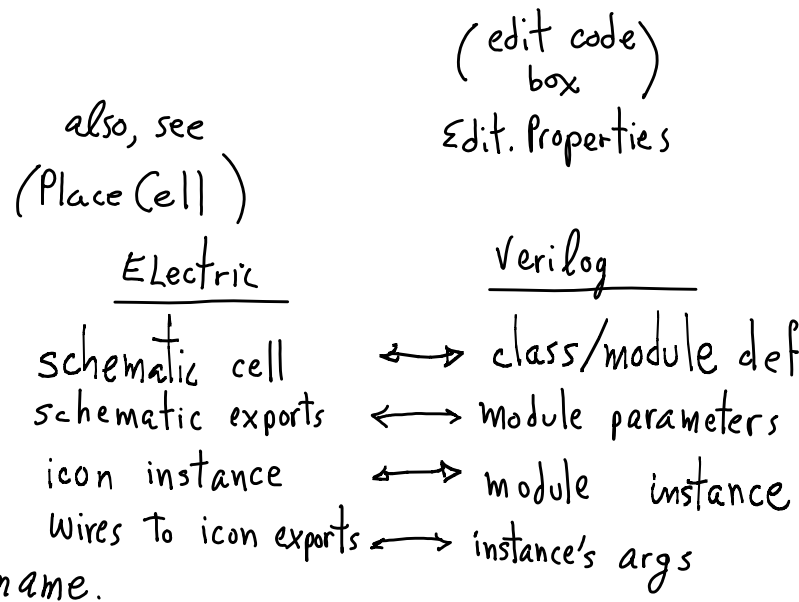 (edit code
box)
also, see
Edit. Properties
(Place Cell)
Electric
Verilog
schematic cell ↔ class/module def
schematic exports ↔ module parameters
icon instance ↔ module instance
wires to icon exports ↔ instance's args
name.